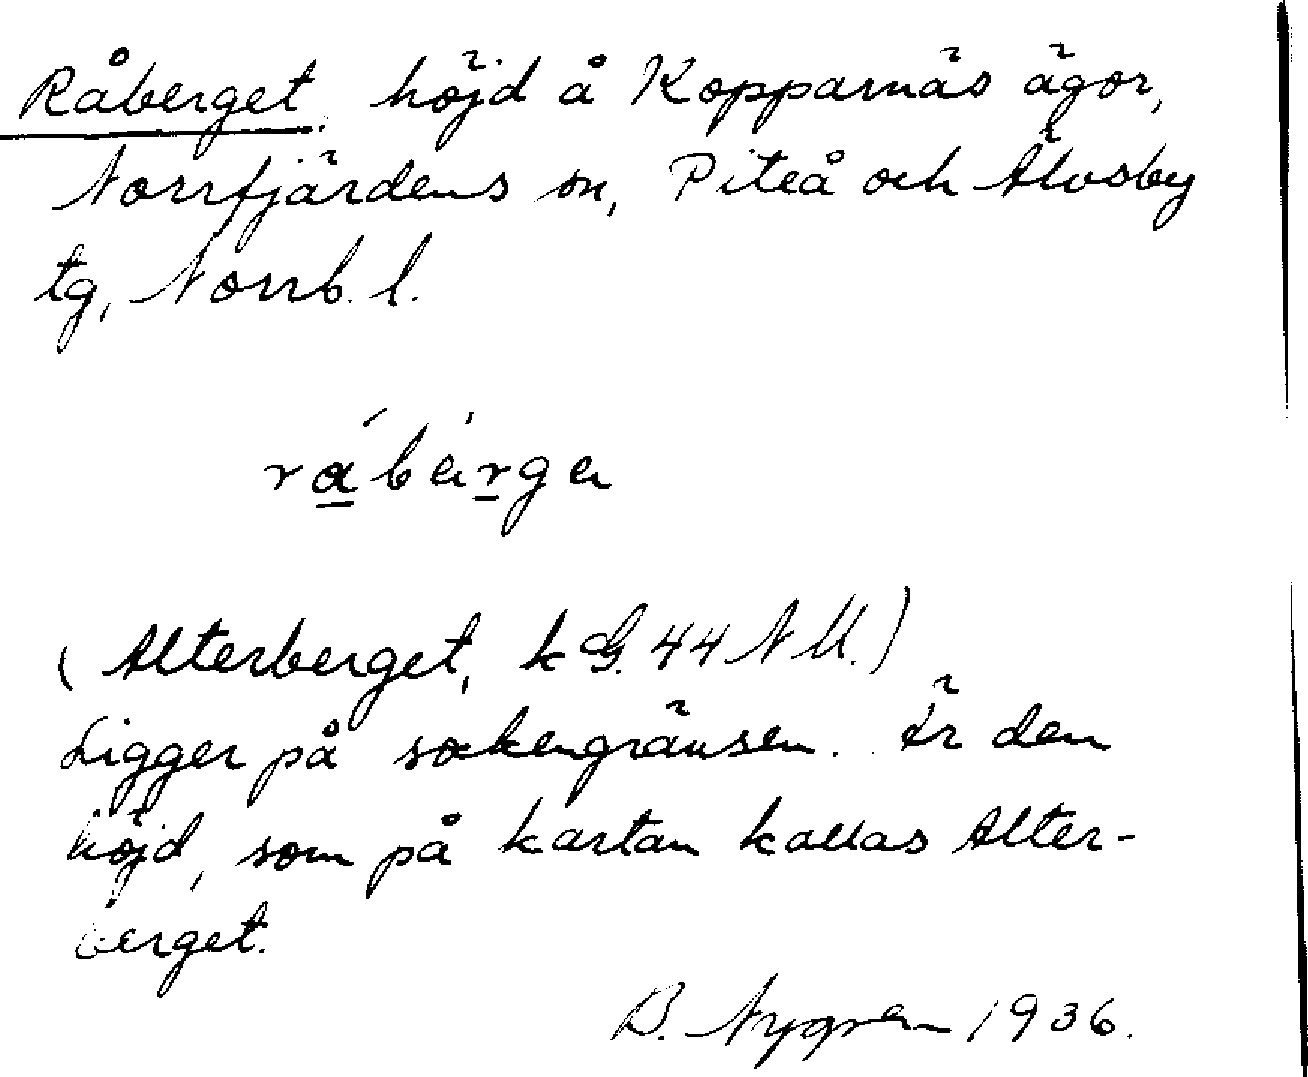 Råberget, höjd å Kopparnäs ägor,
Norrfjärdens sn, Piteå och Älvsby
tg, Norrb. l.
råbérge
(Alterberget, kG. 44 NU.)
Ligger på sockengränsen. Är den
höjd, som på kartan kallas Alter-
berget.
B. Nygren 1936.